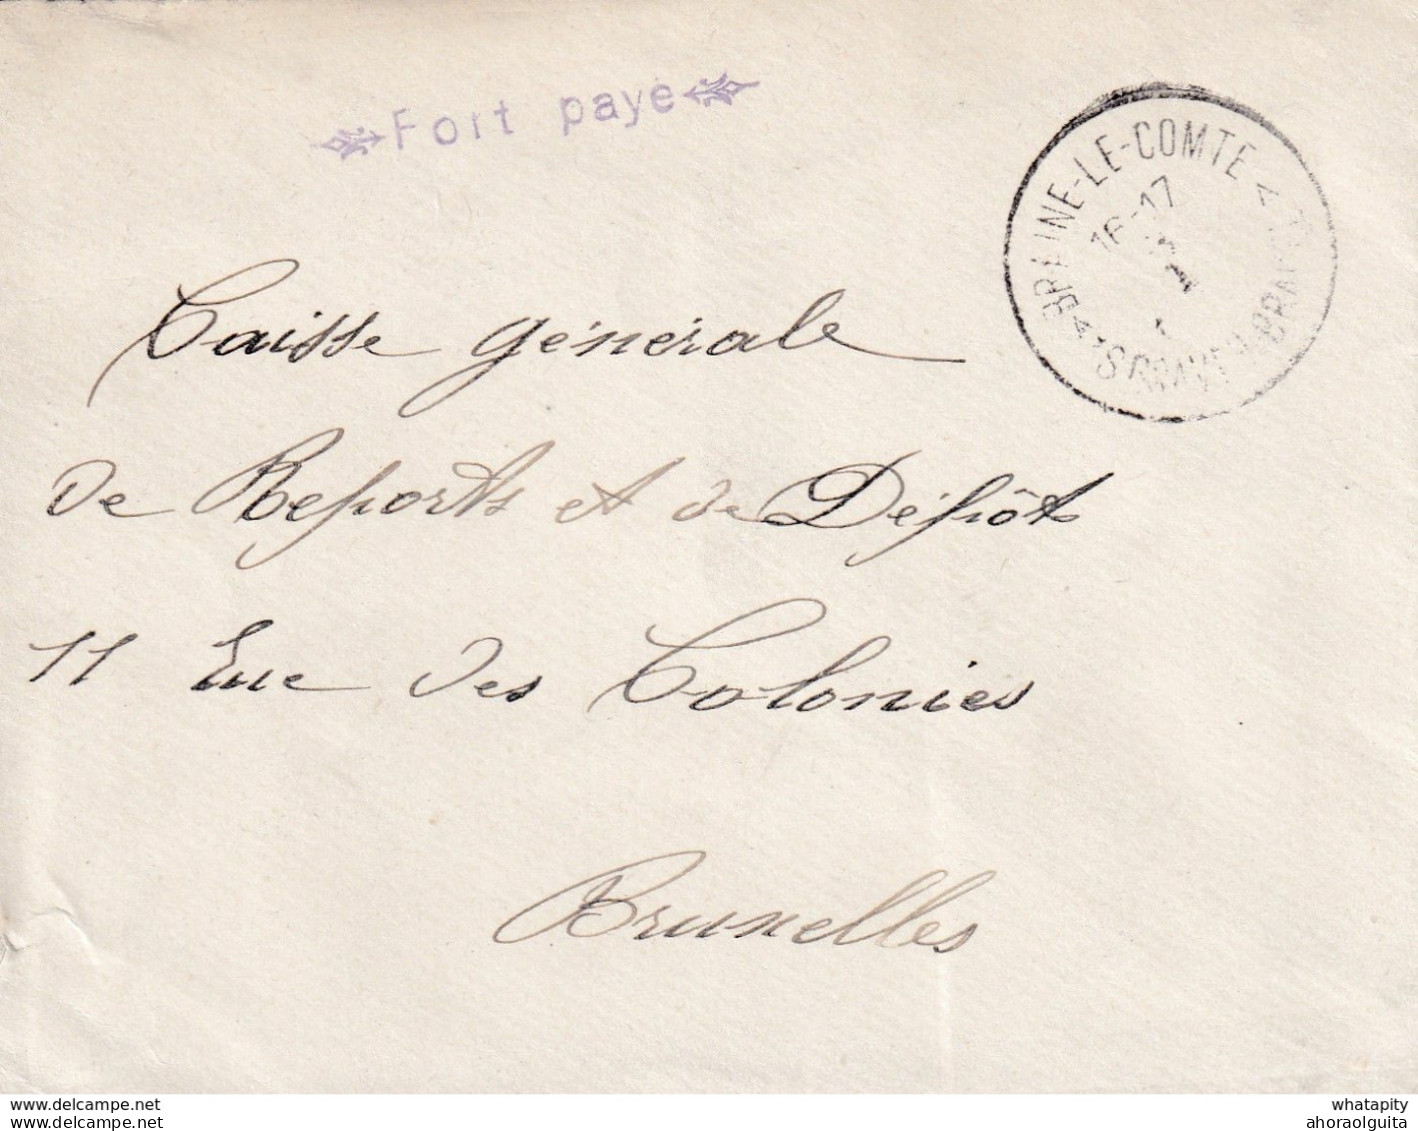 Fort payé
BRAINE-LE-COMTE
16-17
Caisse générale
de Reports et de Dépôts
11 Rue des Colonies
Bruxelles
delcampe.net
delcampe.net
whatapity
ahoraolguita